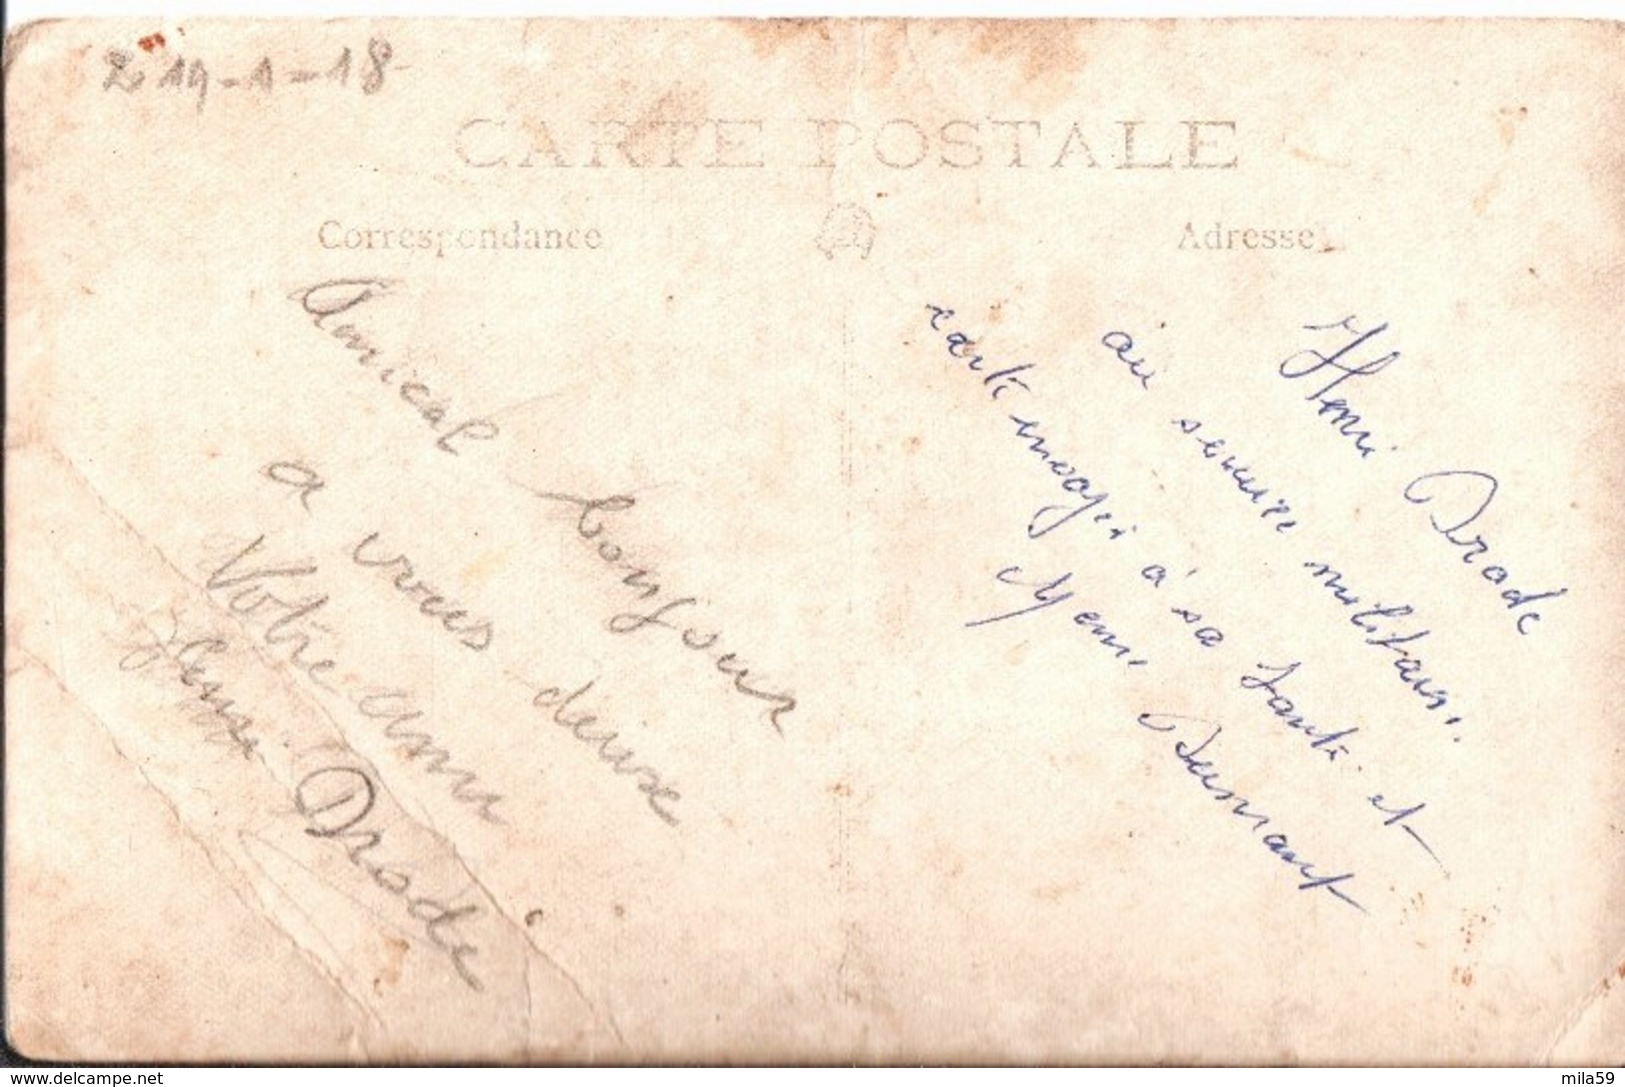 219-1-18
CARTE POSTALE
Correspondance
Adresse
Amical bonjour
a vous deux
Votre ami
Henri Drode
Henri Drode
au service militaire.
carte envoyée à sa tante et
Dumont
www.delcampe.net
mila59